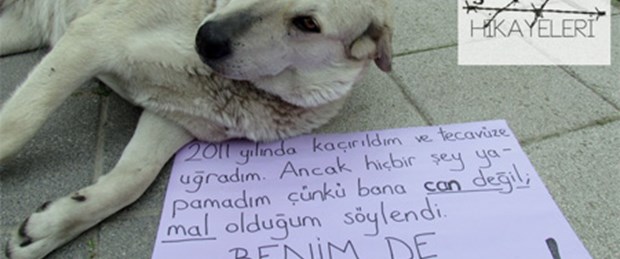 HİKAYELERİ
2011 yılında kaçırıldım ve tecavüze
uğradım. Ancak hiçbir şey ya-
pamadım çünkü bana can değil;
mal olduğum söylendi.
BENİM DE
!